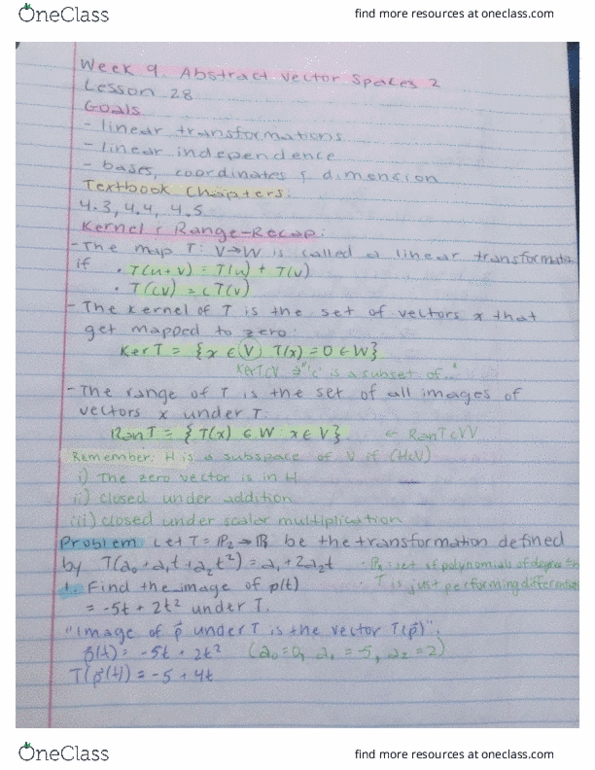 OneClass
find more resources at oneclass.com
Week 9. Abstract Vector Spaces 2
Lesson 28
Goals
- linear transformations
- linear independence
- bases, coordinates & dimension
Textbook Chapters:
4.3, 4.4, 4.5
Kernel & Range-Recap:
- The map T: V→W is called a linear transformatio
if • T(u+v) = T(u) + T(v)
• T(cv) = cT(v)
- The kernel of T is the set of vectors x that
get mapped to zero:
Ker T = {x ∈ V) T(x) = 0 ∈ W}
KerT⊂V → "⊂" is a subset of..."
- The range of T is the set of all images of
vectors x under T:
Ran T = {T(x) ∈ W: x ∈ V} ← Ran T⊂W
Remember: H is a subspace of V if (H⊂V)
i) The zero vector is in H
ii) closed under addition
iii) closed under scalar multiplication
Problem Let T = P₂ → be the transformation defined
by T(a₀+a₁t+a₂t²) = a₁+2a₂t • set of polynomials of degree
1. Find the image of p(t) • T is just performing differentiation
= -5t + 2t² under T.
"Image of p⃗ under T is the vector T(p⃗)".
p⃗(t) = -5t + 2t² (a₀=0, a₁=-5, a₂=2)
T(p⃗(t)) = -5 + 4t
OneClass
find more resources at oneclass.com